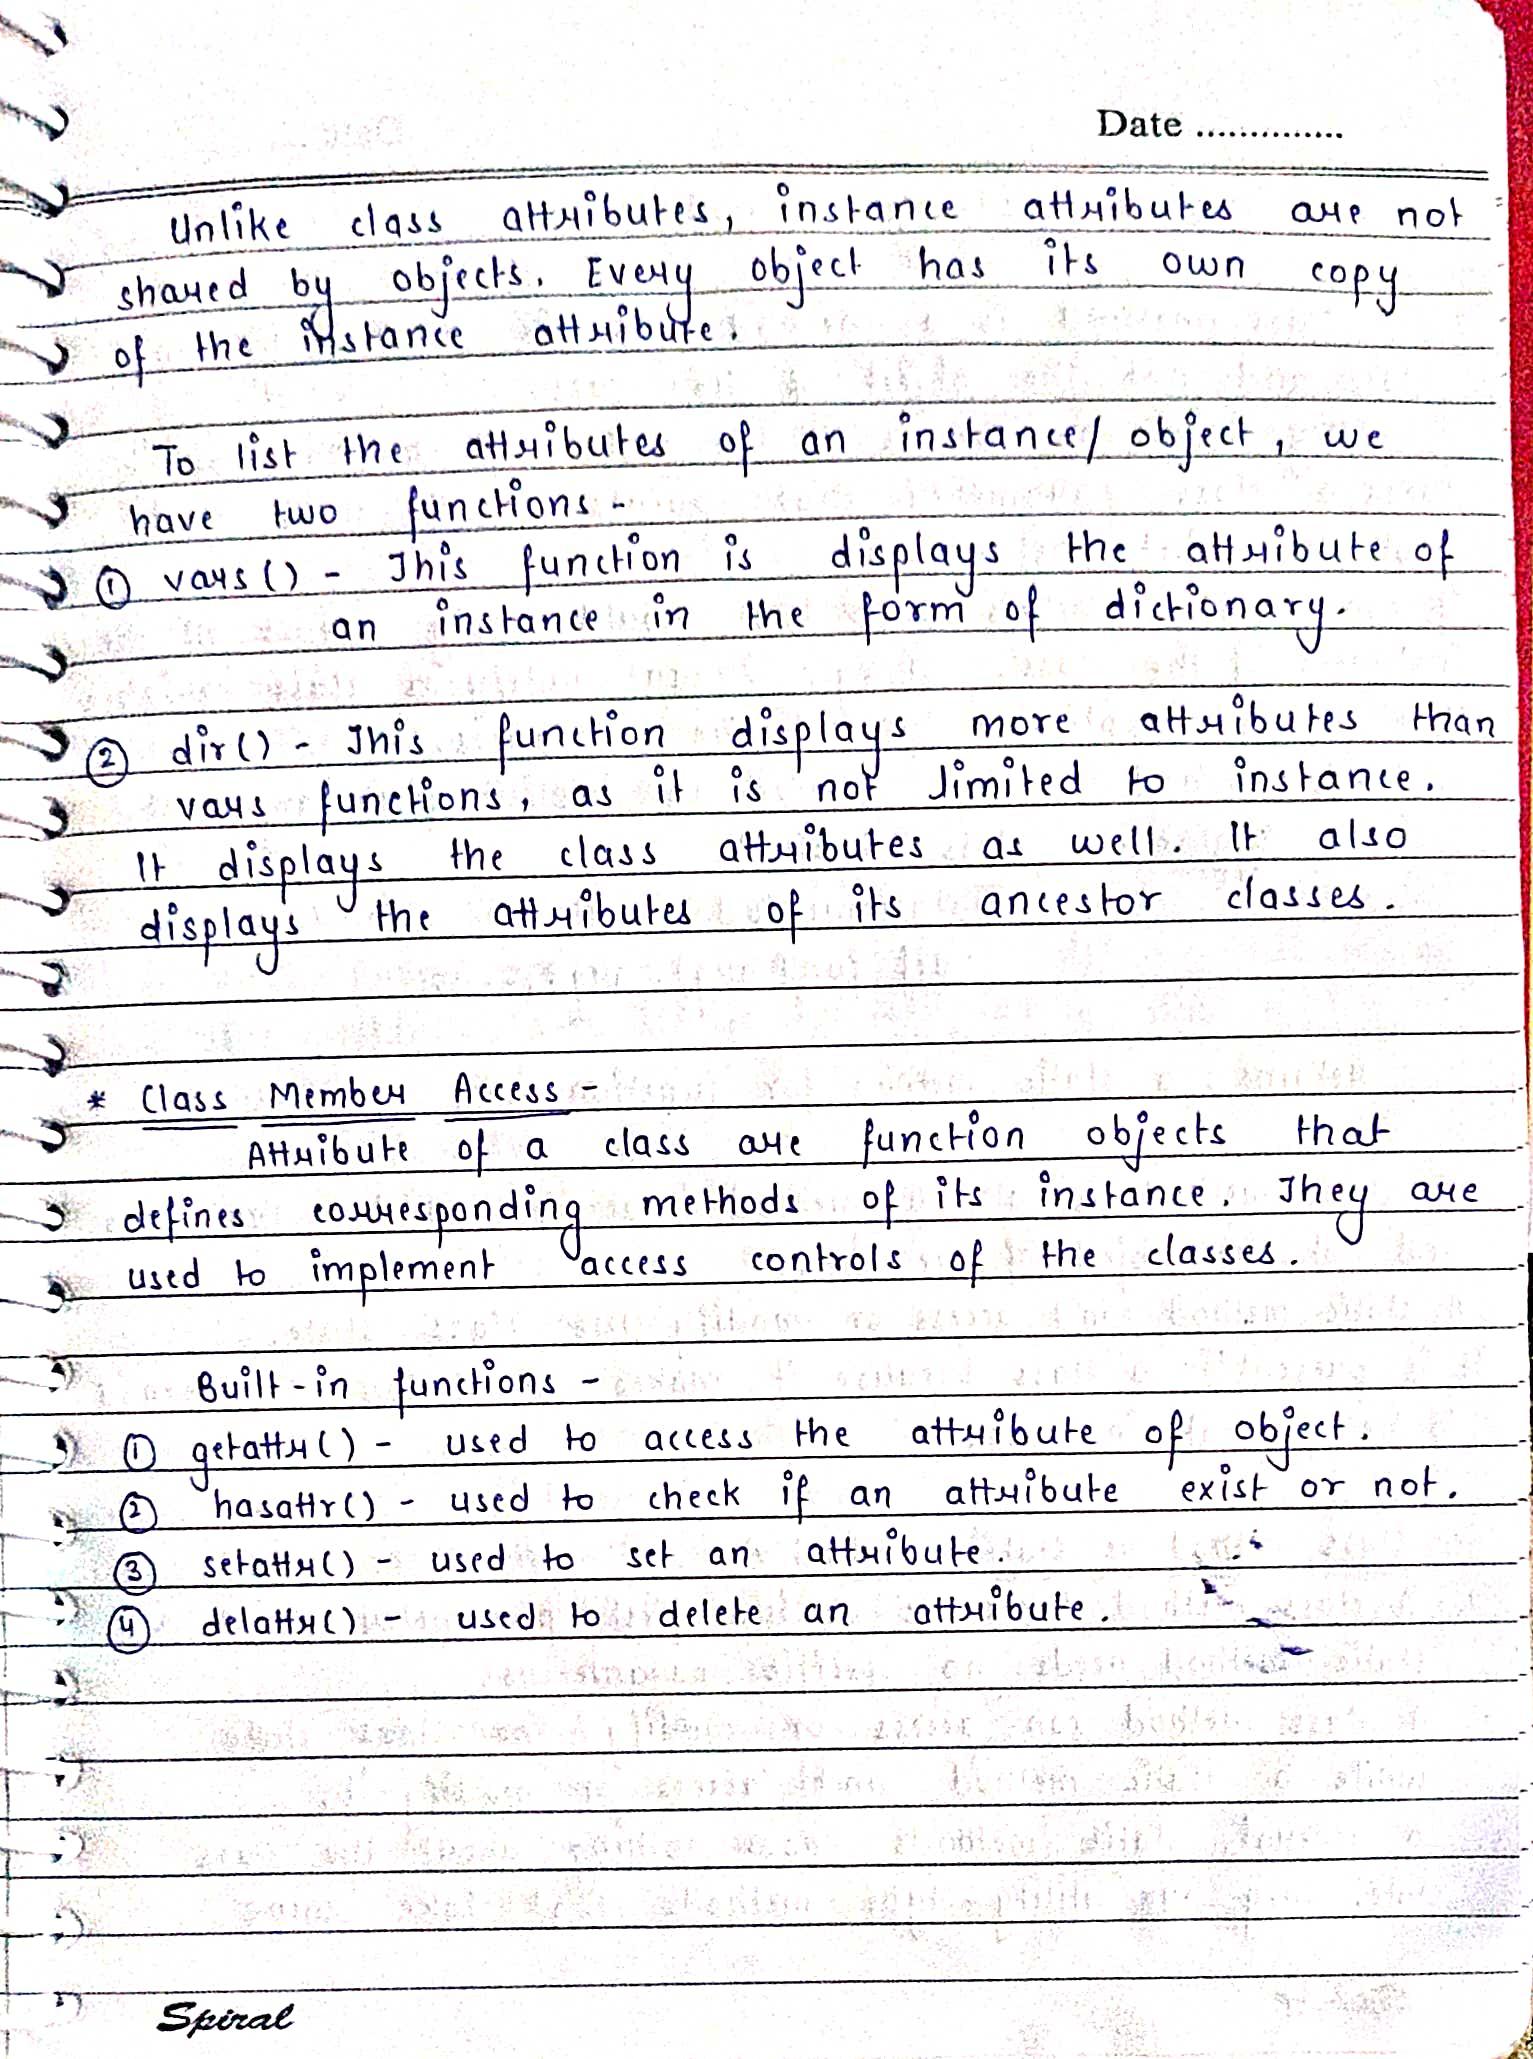 Date ..............
Unlike class attributes, instance attributes are not
shared by objects. Every object has its own copy
of the instance attribute.
To list the attributes of an instance/ object, we
have two functions -
① vars () - This function is displays the attribute of
an instance in the form of dictionary.
② dir() - This function displays more attributes than
vars functions, as it is not limited to instance.
It displays the class attributes as well. It also
displays the attributes of its ancestor classes.
* Class Member Access -
Attribute of a class are function objects that
defines corresponding methods of its instance. They are
used to implement access controls of the classes.
Built-in functions -
① getattr() - used to access the attribute of object.
② hasattr() - used to check if an attribute exist or not.
③ setattr() - used to set an attribute.
④ delattr() - used to delete an attribute.
Spiral